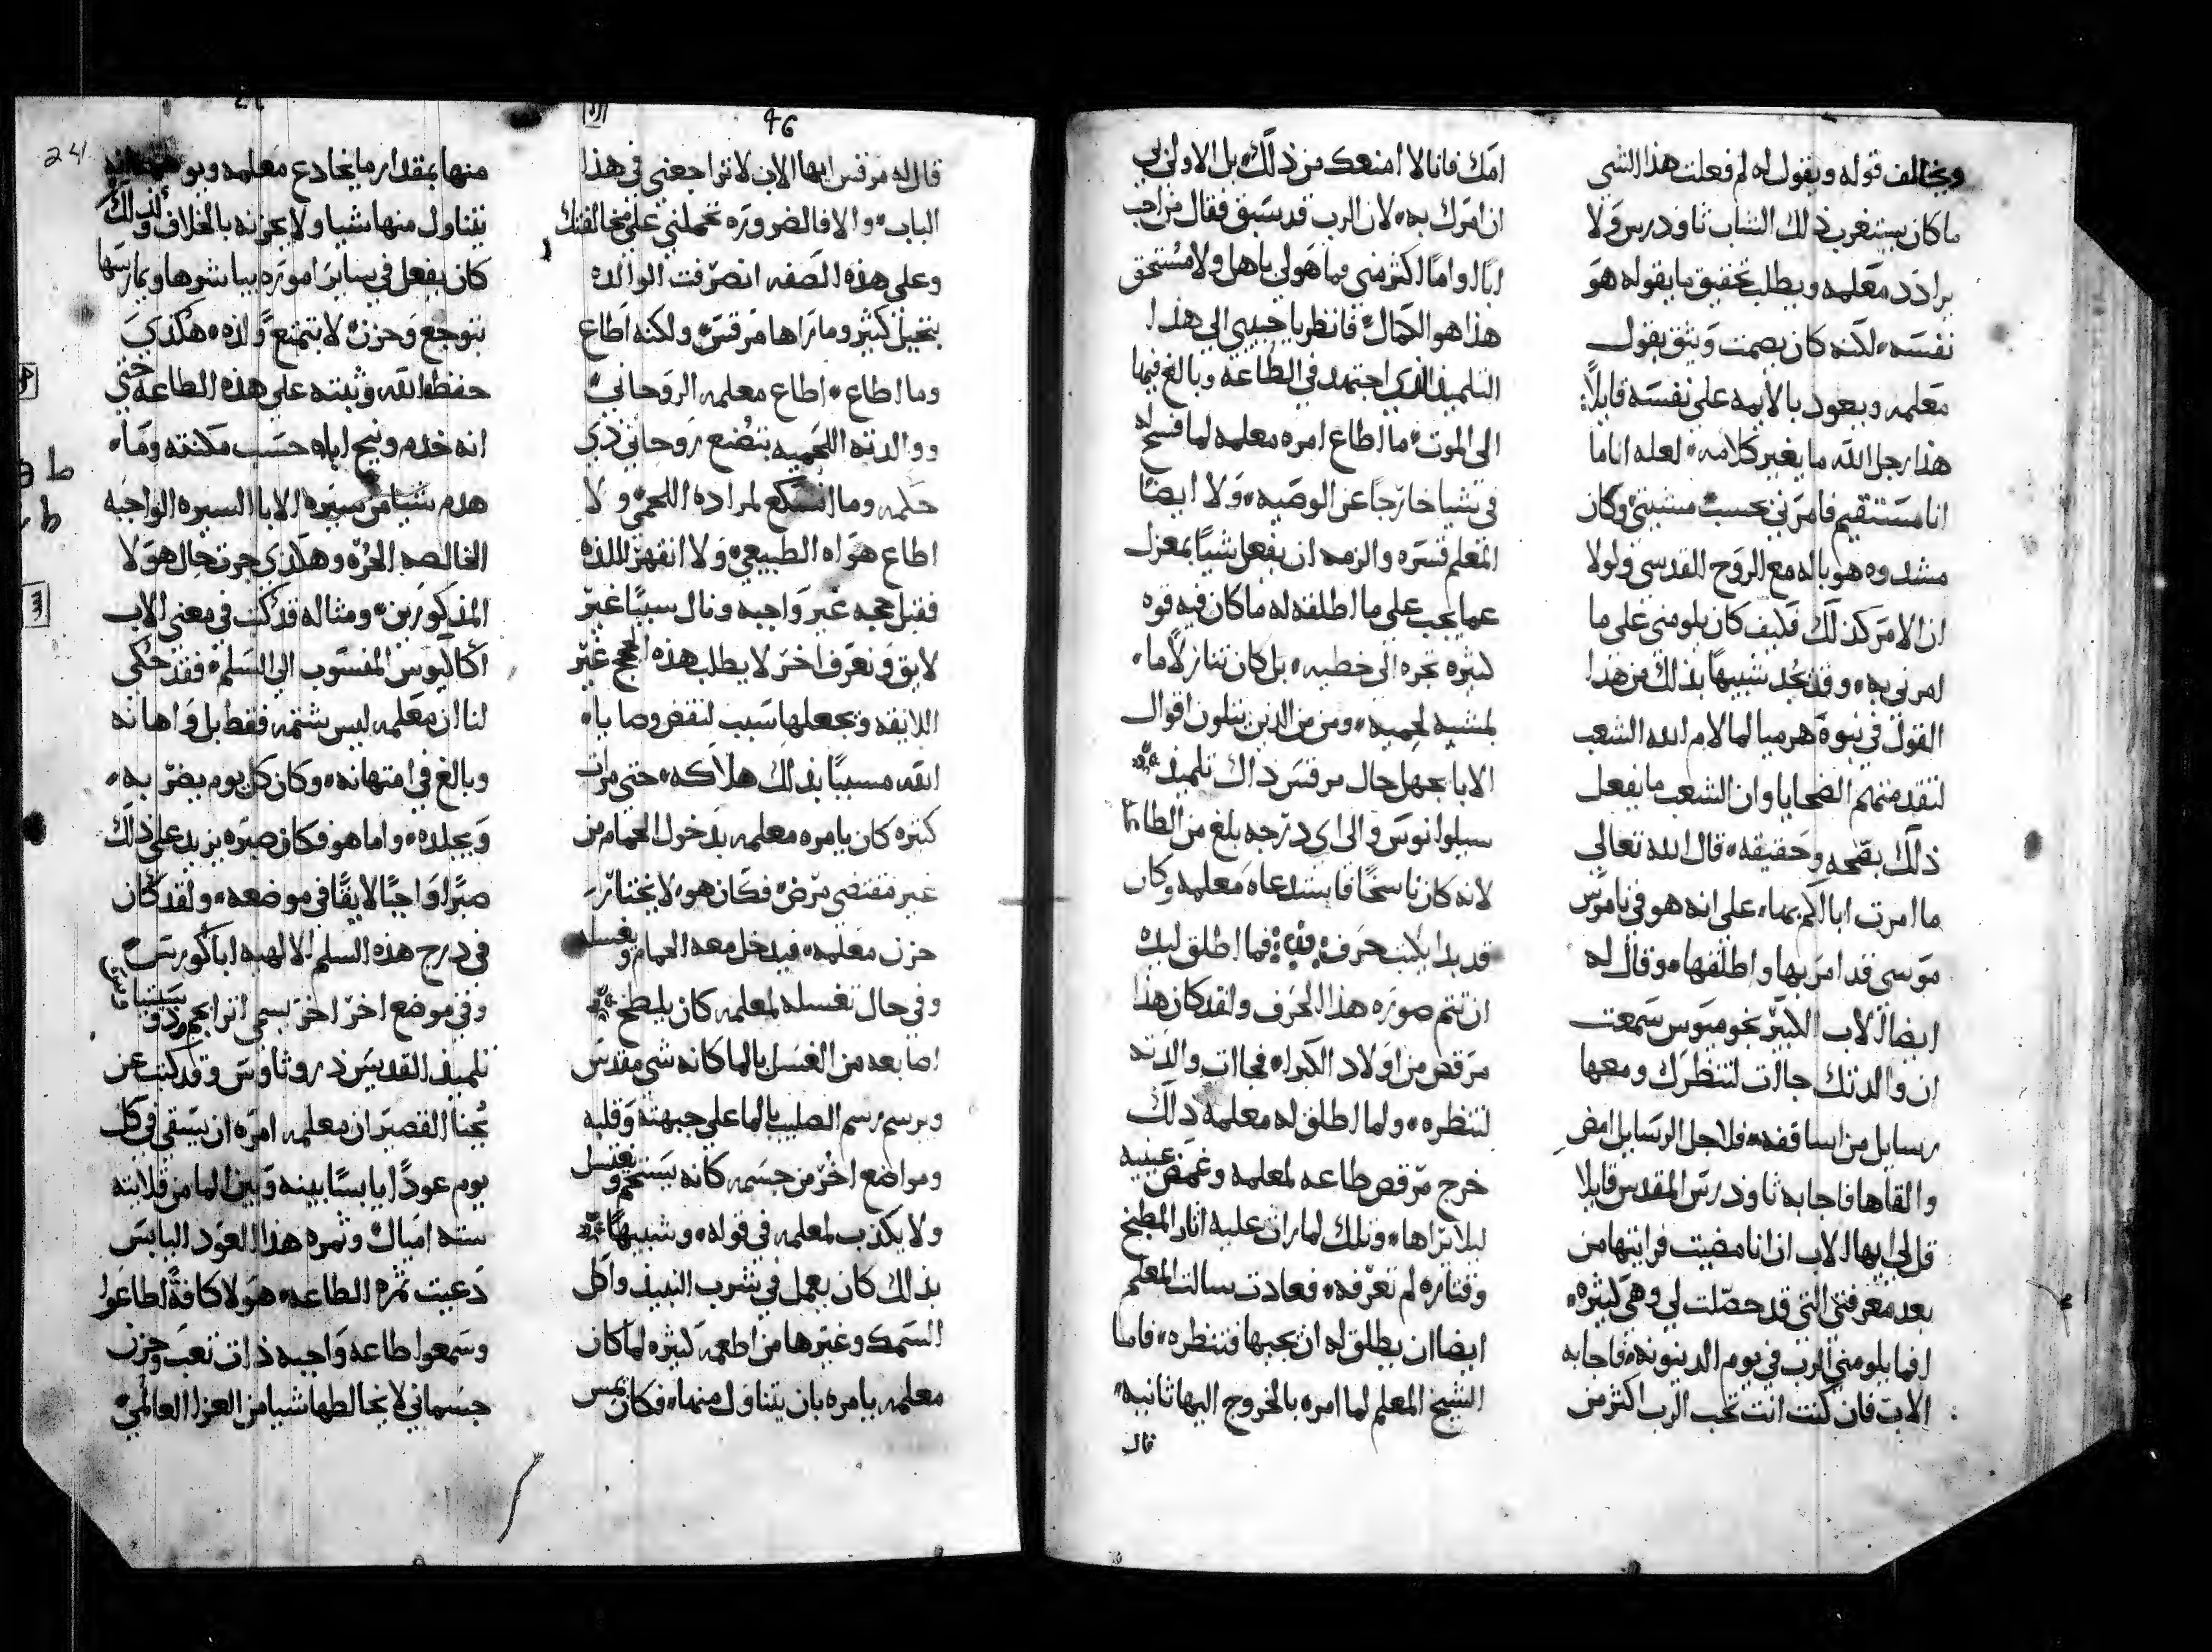 ويخالف قوله ويقول له لم فعلت هذا الشي
ما كان يستغرب ذلك الشاب ثاودرس ولا
يرادد معلمه ويطلب تحقيق ما يقوله هو
نفسه لكنه كان يصمت ويثق بقول
معلمه ويعود بالايمه على نفسه قايلاً
هذا رجل الله ما يغير كلامه لعله انا ما
انا مستقيم فامرني بحسب مشيتي وكان
مشدوه هو باله مع الروح القدسي ولولا
ان الامر كذلك فكيف كان يلومني على ما
امرني به وقد نجد شبيهاً بذلك من هذا
القول في نبوة هرميا لما لام الله الشعب
لتقدمتهم الضحايا وان الشعب ما يفعل
ذلك بصحه وحقيقه قال الله تعالى
ما امرت اباكم بها على انه هو في ناموس
موسى قد امر بها واطلقها وقال له
ايضا الاب الكبير نحوميوس سمعت
ان والدتك جاات لتنظرك ومعها
رسايل من اساقفه فلاجل الرسايل امض
والقاها فاجابه ثاودرس المقدس قايلا
قل لي ايها الاب ان انا مضيت فرايتها من
بعد معرفتي التي قد حصلت لي وهي كثيره
افما يلومني الرب في يوم الدينونه فاجابه
الاب فان كنت انت تحب الرب اكثر من
امك فانا لا امنعك من ذلك بل الاولى بي
ان امرك به لان الرب قد سبق فقال من احب
اباً او اماً اكثر مني فما هو لي باهل ولا مستحق
هذا هو الكمال فانظر يا حبيبي الى هذا
التلميذ الذي اجتهد في الطاعه وبالغ فيها
الى الموت ما اطاع امره معلمه لما فسح له
في شيا خارجاً عن الوصيه ولا ايضاً
المعلم قسره والزمه ان يفعل شياً بمعزل
عما يجب على ما اطلقه له ما كان فيه قوه
كثيره تجره الى خطيه بل كان تنازلاً ما
لمشيه لحميه ومن من الذين يتلون اقوال
الابا يجهل حال مرقس ذاك تلميذ
سيلوانوس والى اي درجه بلغ من الطاعه
لانه كان ناسخاً فاستدعاه معلمه وكان
قد بدا يكتب حرف فما اطلق ليده
ان تتم صوره هذا الحرف ولقد كان هذا
مرقص من اولاد الكبرا فجاات والدته
لتنظره ولما اطلق له معلمه ذلك
خرج مرقص طاعه لمعلمه وغمض عينيه
ليلا يراها وتلك لما رات عليه اثار المطبخ
وقتاره لم تعرفه فعادت سالت المعلم
ايضا ان يطلق له ان يجيها فتنظره فاما
الشيخ المعلم لما امره بالخروج اليها ثانيه
قال
46
قال له مرقس ايها الاب لا تراجعني في هذا
الباب والا فالضروره تحملني على مخالفتك
وعلى هذه الصفه انصرفت الوالده
بتخيل كثير وما راها مرقس ولكنه اطاع
وما اطاع اطاع معلمه الروحاني
ووالدته اللحميه بتصنع روحاني ذي
حكمه وما لمراده اللحمي ولا
اطاع هواه الطبيعي ولا انقهر للذه
فقبل حجه غير واجبه ونال سبباً غير
لايق وتعرف اخر لا يطلب هذه الحجج غير
اللايقه ويجعلها سبب لنقض وصايا
الله مسبباً بذلك هلاكه حتى مرات
كثيره كان يامره معلمه بدخول الحمام من
غير مقتضى مرض فكان هو لا يختار
حزن معلمه فيدخل معه الحمام ويغسله
وفي حال تغسله لمعلمه كان يلطخ
اصابعه من الغسل بالما كانه شي مقدس
ويرسم رسم الصليب بالما على جبهته وقلبه
ومواضع اخر من جسمه كانه يستحم ويغتسل
ولا يكذب لمعلمه في قوله وشبيهاً
بذلك كان يعمل في شرب النبيذ واكل
السمك وغيرها من اطعمه كثيره لما كان
معلمه يامره بان يتناول منها فكان يمس
241
منها بمقدار ما يخادع معلمه ويوهمه انه
يتناول منها شيا ولا يحزنه بالخلاف وكذلك
كان يفعل في ساير اموره يباشرها ويمارسها
بتوجع وحزن لا بتمتع ولذه هكذي
حفظه الله وثبته على هذه الطاعه حتى
انه خدم ونيح اباه حسب مكنته وما
هدم شيا من سيره الابا السيره الواجبه
الخالصه الحره وهكذي جرت حال هولا
المذكورين ومثاله قد كتب في معنى الاب
اكاكيوس المنسوب الى السلم فقد حكى
لنا ان معلمه ليس شتمه فقط بل واهانه
وبالغ في امتهانه وكان كل يوم يضربه
ويجلده واما هو فكان صبره يزيد على ذلك
صبراً واجباً لايقاً في موضعه ولقد كان
في درج هذه السلم الالهيه اباكورس
وفي موضع اخر اخر يسمى
تلميذ القديس ذروثاوس وقد كتب عن
يحنا القصير ان معلمه امره ان يسقي في كل
يوم عوداً يابساً بينه وبين الما من قلايته
سته امياك وثمره هذا العود اليابس
دعيت ثمره الطاعه هولا كافةً اطاعوا
وسمعوا طاعه واجبه ذات تعب وحزن
جسماني لا يخالطها شيا من العزا العالمي